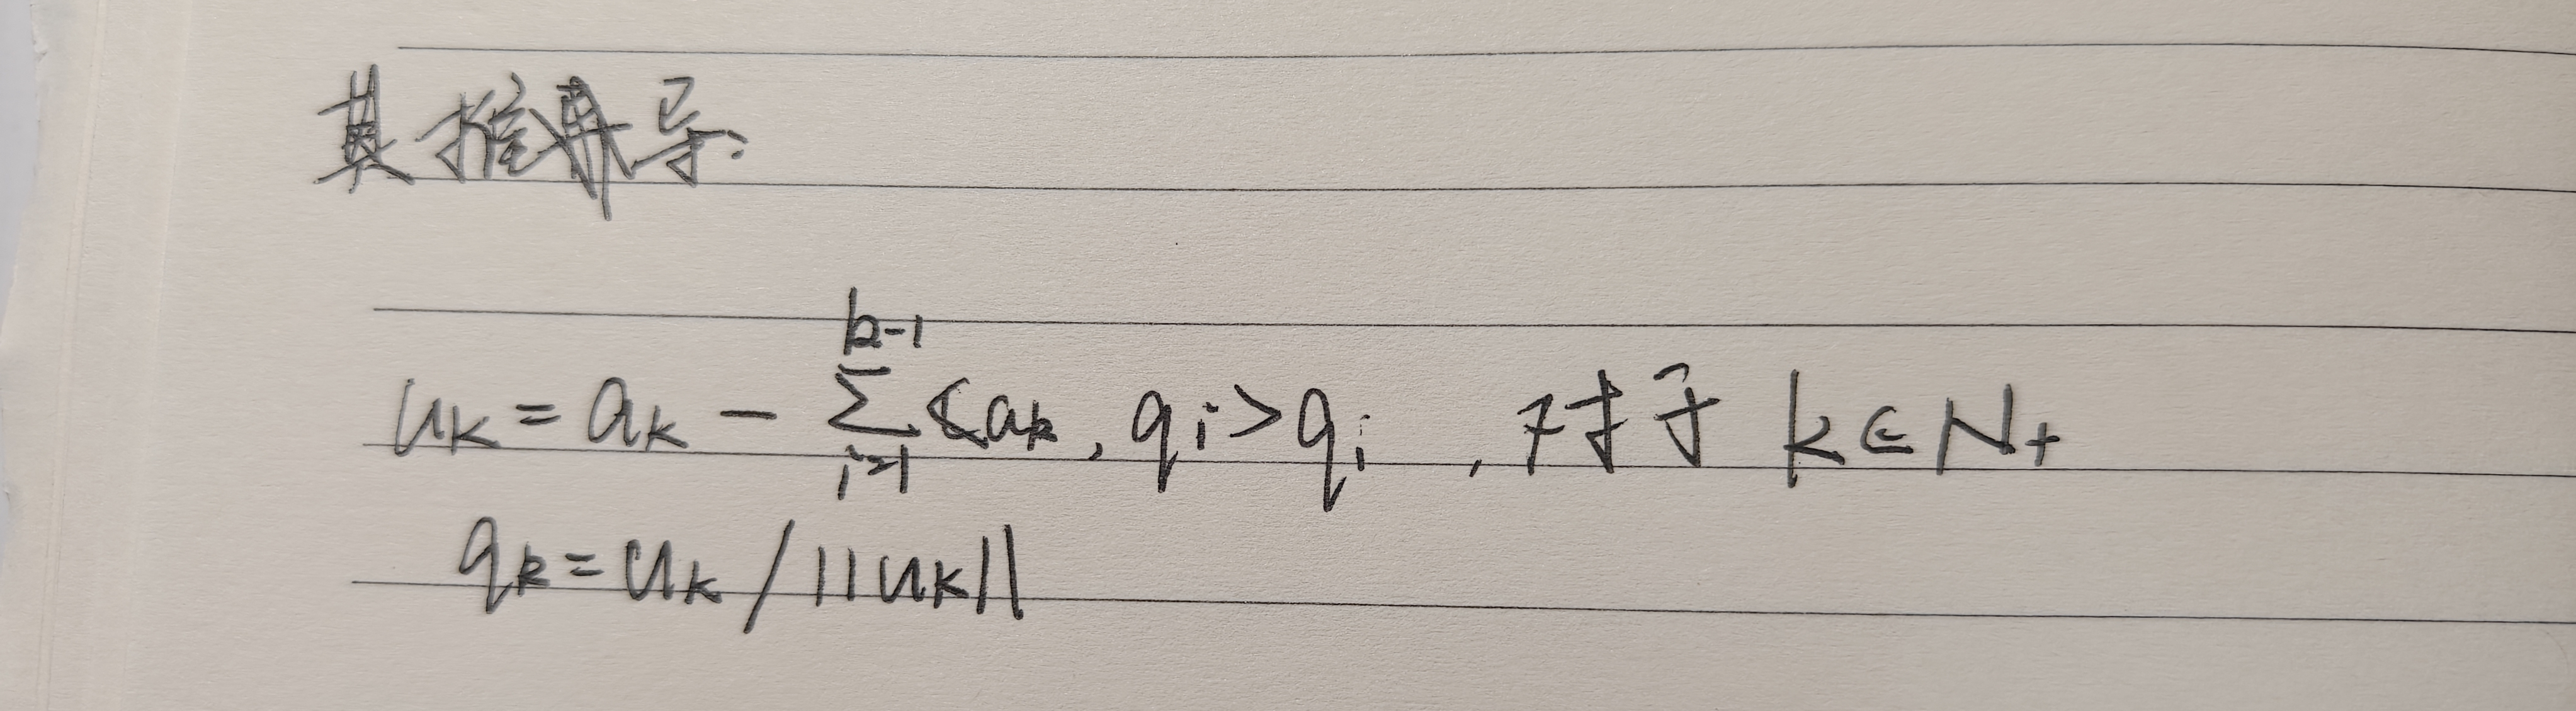 其推导:
u_k = a_k - \sum_{i=1}^{k-1} <a_k, q_i> q_i , 对于 k ∈ N_+
q_k = u_k / ||u_k||